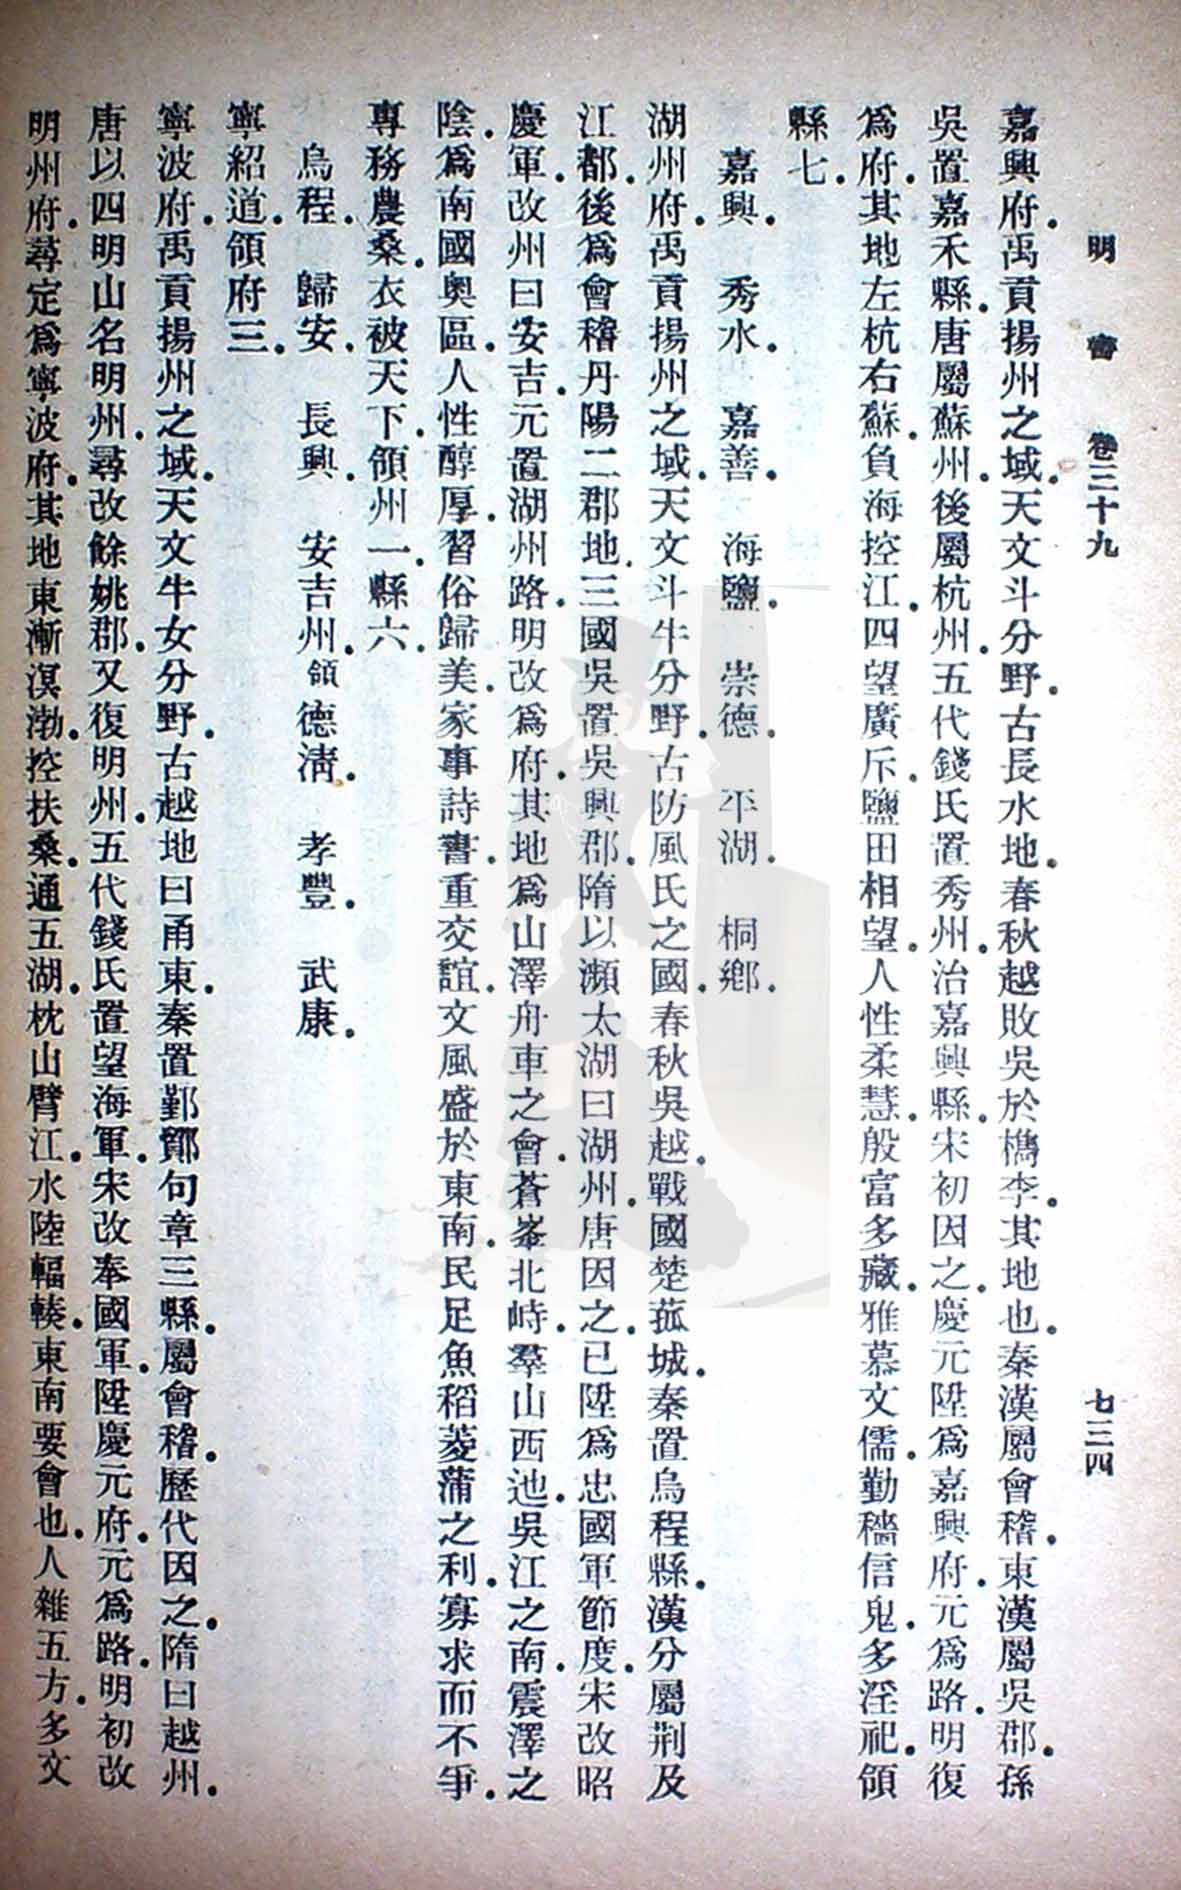 明 書 卷三十九 七三四
嘉興府.禹貢揚州之域.天文斗分野.古長水地.春秋越敗吳於檇李.其地也.秦漢屬會稽.東漢屬吳郡.孫
吳置嘉禾縣.唐屬蘇州.後屬杭州.五代錢氏置秀州.治嘉興縣.宋初因之.慶元陞爲嘉興府.元爲路.明復
爲府.其地左杭右蘇.負海控江.四望廣斥.鹽田相望.人性柔慧.殷富多藏.雅慕文儒.勤穡信鬼.多淫祀.領
縣七.
嘉興. 秀水. 嘉善. 海鹽. 崇德. 平湖. 桐鄉.
湖州府.禹貢揚州之域.天文斗牛分野.古防風氏之國.春秋吳越.戰國楚菰城.秦置烏程縣.漢分屬荆及
江都.後爲會稽丹陽二郡地.三國吳置吳興郡.隋以瀕太湖曰湖州.唐因之.已陞爲忠國軍節度.宋改昭
慶軍.改州曰安吉.元置湖州路.明改爲府.其地爲山澤舟車之會.蒼峯北峙.羣山西迆.吳江之南.震澤之
陰.爲南國奧區.人性醇厚.習俗歸美.家事詩書.重交誼.文風盛於東南.民足魚稻菱蒲之利.寡求而不爭.
專務農桑.衣被天下.領州一.縣六.
烏程. 歸安. 長興. 安吉州.領 德淸. 孝豐. 武康.
寧紹道.領府三.
寧波府.禹貢揚州之域.天文牛女分野.古越地曰甬東.秦置鄞鄮句章三縣.屬會稽.歷代因之.隋曰越州.
唐以四明山名明州.尋改餘姚郡.又復明州.五代錢氏置望海軍.宋改奉國軍.陞慶元府.元爲路.明初改
明州府.尋定爲寧波府.其地東漸溟渤.控扶桑.通五湖.枕山臂江.水陸輻輳.東南要會也.人雜五方.多文